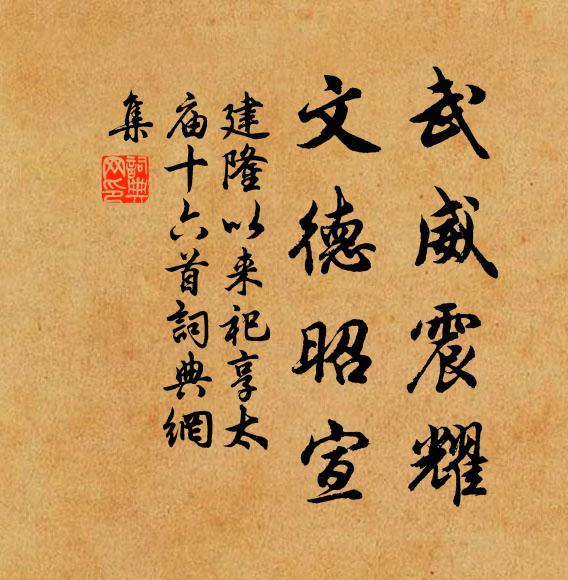 武威震耀
文德昭宣
建隆以来祀享太
庙十六首詞典網
集
詞典网印